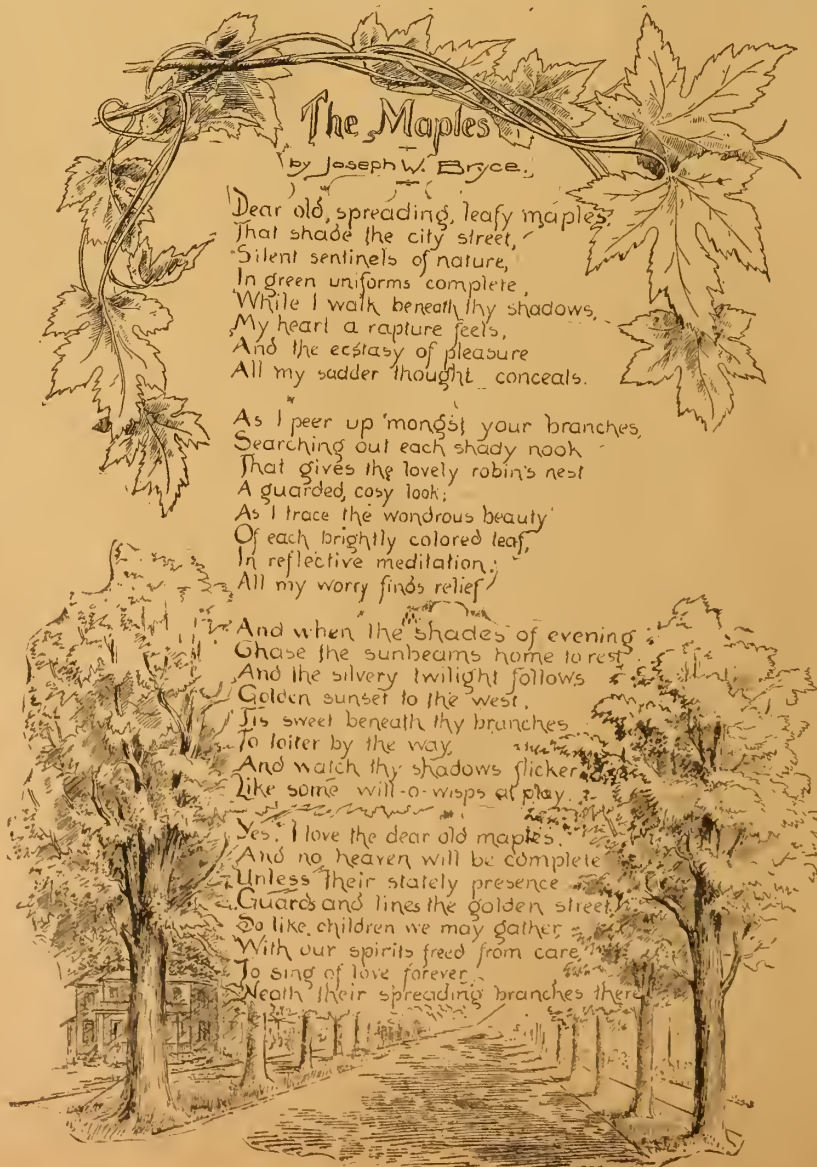 The Maples
by Joseph W. Bryce.
Dear old, spreading, leafy maples,
That shade the city street,
Silent sentinels of nature,
In green uniforms complete,
While I walk beneath thy shadows,
My heart a rapture feels,
And the ecstasy of pleasure
All my sadder thought conceals.
As I peer up 'mongst your branches,
Searching out each shady nook
That gives the lovely robin's nest
A guarded, cosy look;
As I trace the wondrous beauty
Of each brightly colored leaf,
In reflective meditation,
All my worry finds relief
And when the shades of evening
Chase the sunbeams home to rest
And the silvery twilight follows
Golden sunset to the west,
Tis sweet beneath thy branches
To loiter by the way,
And watch thy shadows flicker
Like some will-o-wisps at play.
Yes, I love the dear old maples.
And no heaven will be complete
Unless their stately presence
Guards and lines the golden street,
So like children we may gather
With our spirits freed from care,
To sing of love forever
Neath their spreading branches there